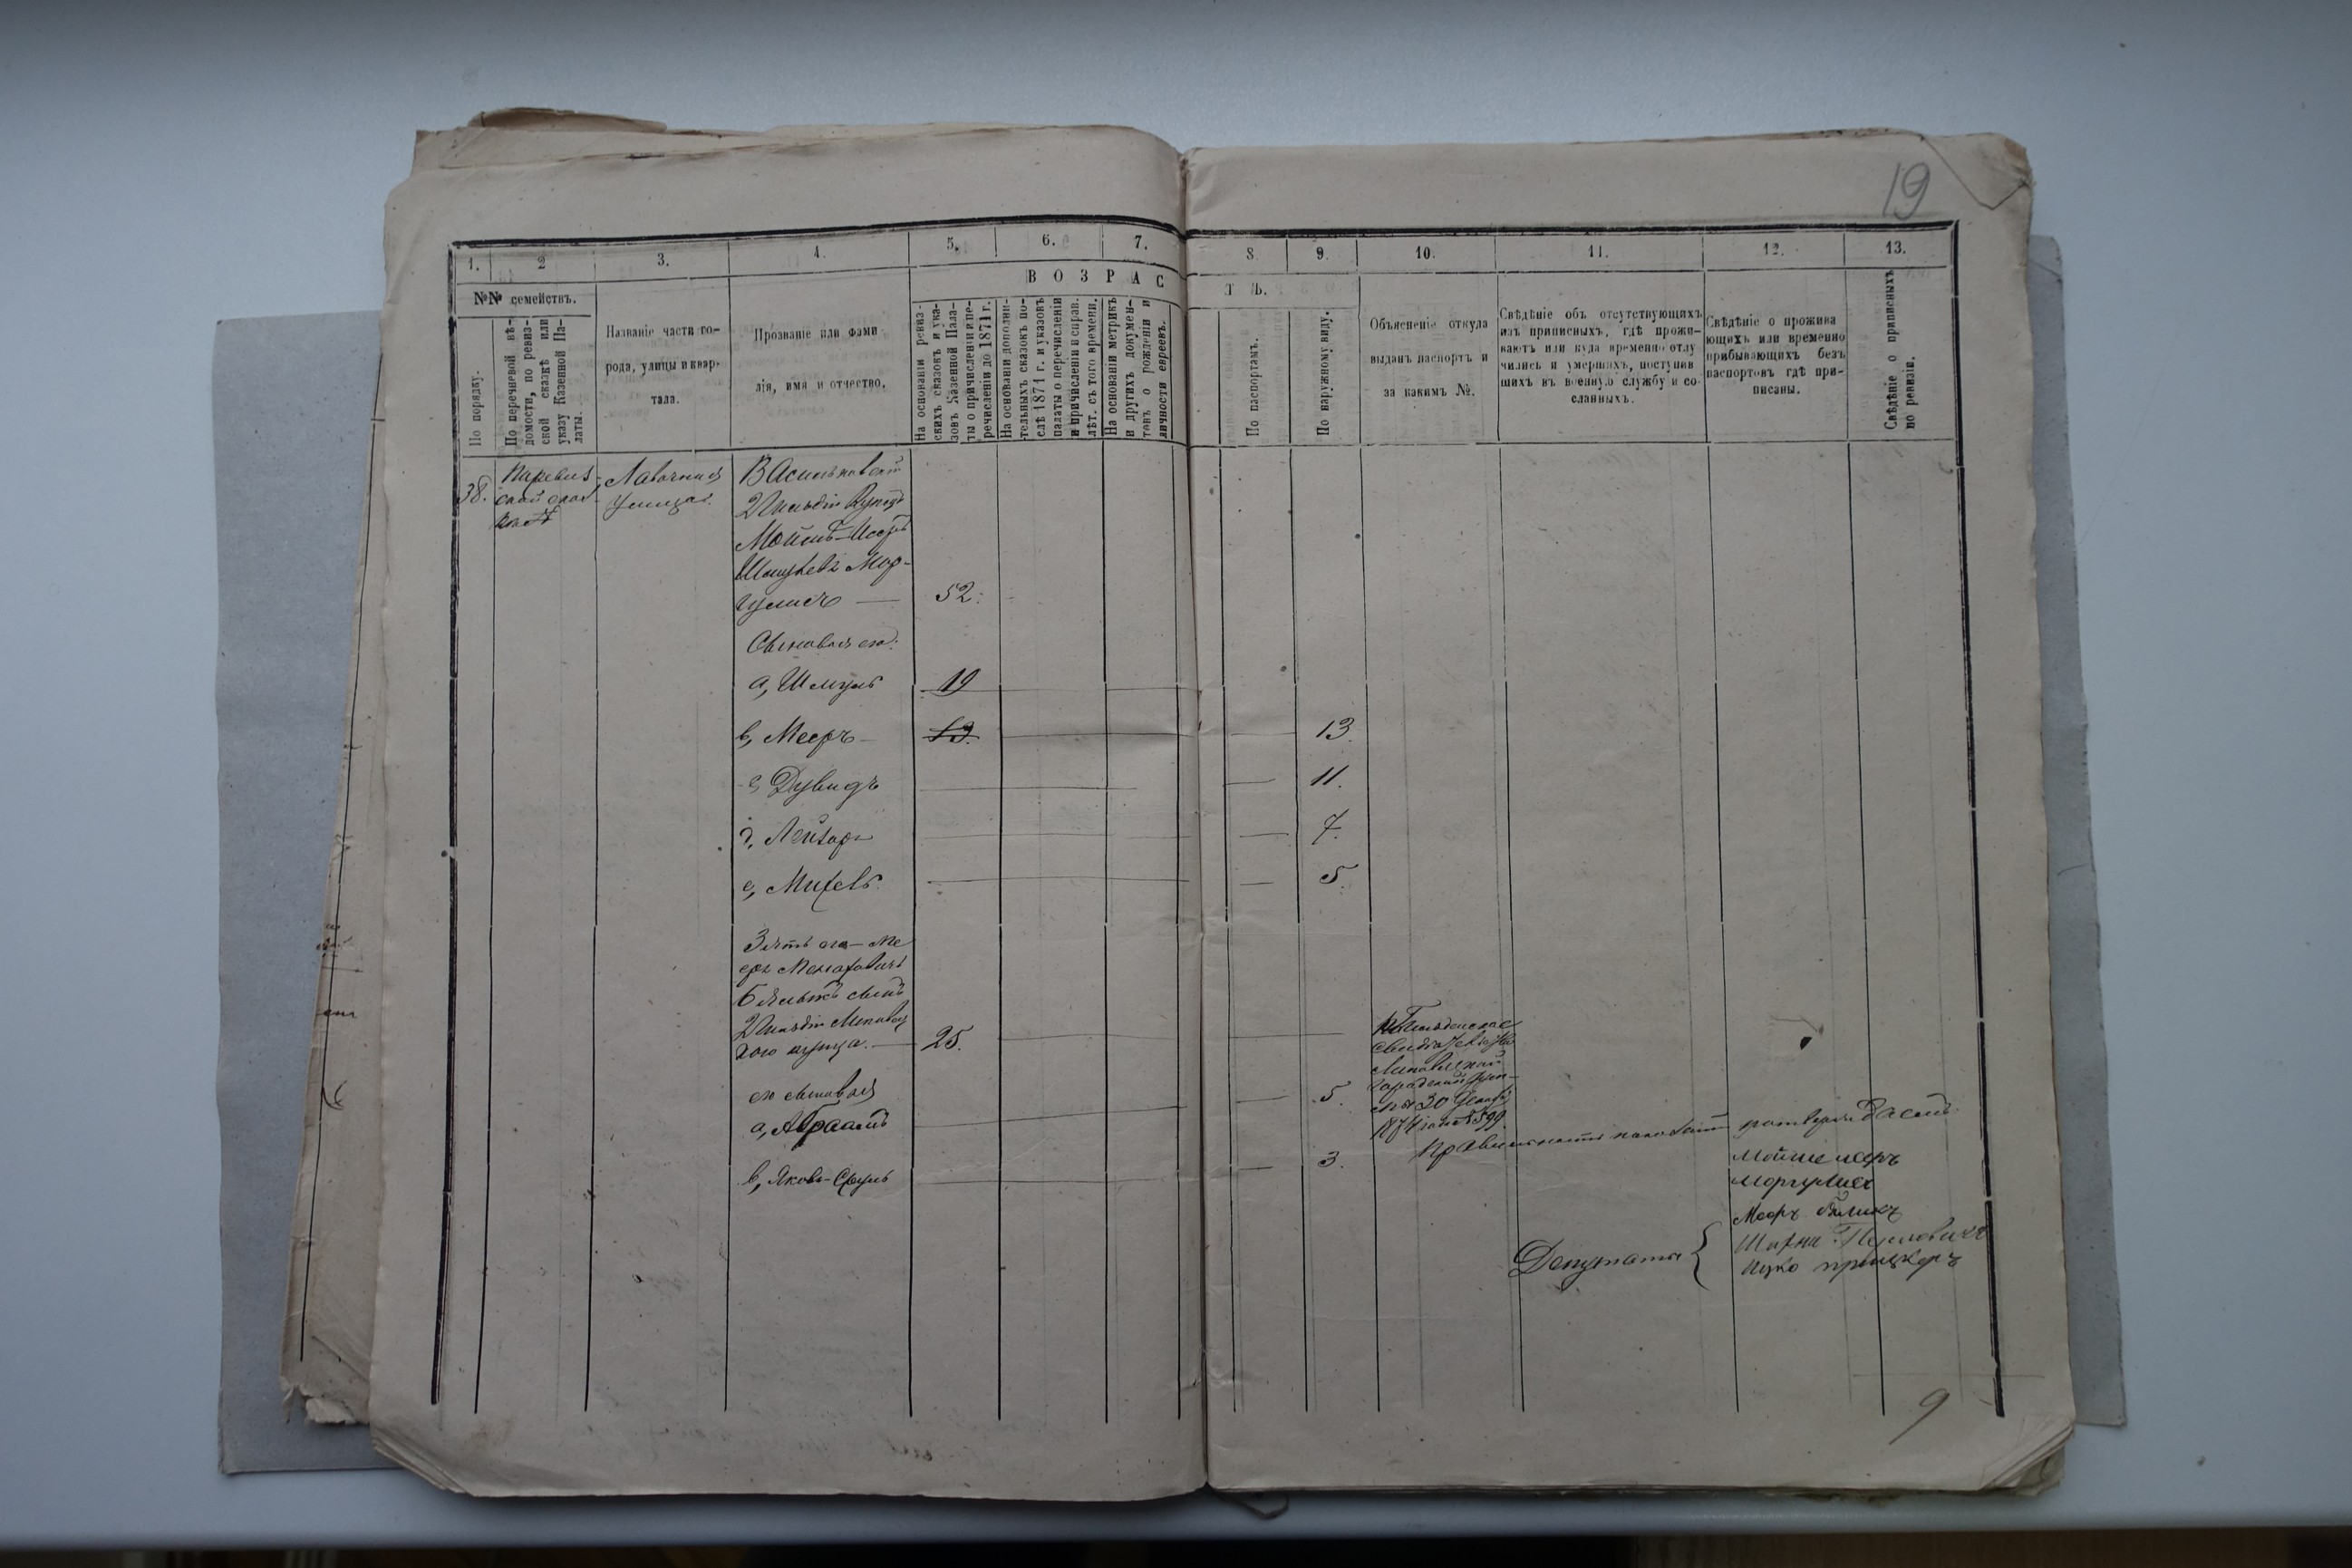 19
1. 2 3. 4. 5. 6. 7. 8 9. 10. 11. 12. 13.
В О З Р А С Т Ъ.
№№ семействъ.
По порядку.
По перечневой вѣ-
домости, по ревиз-
ской сказкѣ или
указу Казенной Па-
латы.
Названіе части го-
рода, улицы и квар-
тала.
Прозваніе или фами-
лія, имя и отчество.
На основаніи ревиз-
скихъ сказокъ и ука-
зовъ Казенной Пала-
ты о причисленіи и пе-
речисленіи до 1871 г.
На основаніи дополни-
тельныхъ сказокъ по-
слѣ 1871 г. и указовъ
палаты о перечисленіи
и причисленіи и справ.
лѣт. съ того времени.
На основаніи метрикъ
и другихъ докумен-
товъ о рожденіи и
личности евреевъ.
По паспортамъ.
По наружному виду.
Объясненіе откуда
выданъ паспортъ и
за какимъ №.
Свѣдѣніе объ отсутствующихъ
изъ приписныхъ, гдѣ прожи-
ваютъ или куда временно отлу
чились и умершихъ, поступив
шихъ въ военную службу и со-
сланныхъ.
Свѣдѣніе о прожива
ющихъ или временно
прибывающихъ безъ
паспортовъ гдѣ при-
писаны.
Свѣдѣніе о приписныхъ
по ревизіи.
38. Лавочная
улица.
2 Гильдіи Купецъ
Мойше-Иосъ
Мар-
гулисъ — 52.
Сыновья его:
а, Шмуль 19
в, Мееръ — 13. 13.
с Дувидъ 11.
д, Лейзоръ 7.
е, Михель. 5.
Зять его — Ме
еръ
сынъ
2 Гильдіи Липовец
кого купца. — 25.
его сыновья
а, Абраамъ 5.
в, Яковъ-Сруль 3.
Свидѣтельство
Липовецкой
Городской
30 Декабр
1874 года №599.
Правильность показаній подтверждаемъ:
Мойше иосъ
моргулисъ
Мееръ бяликъ
Депутаты {
Ицко прицкеръ
9